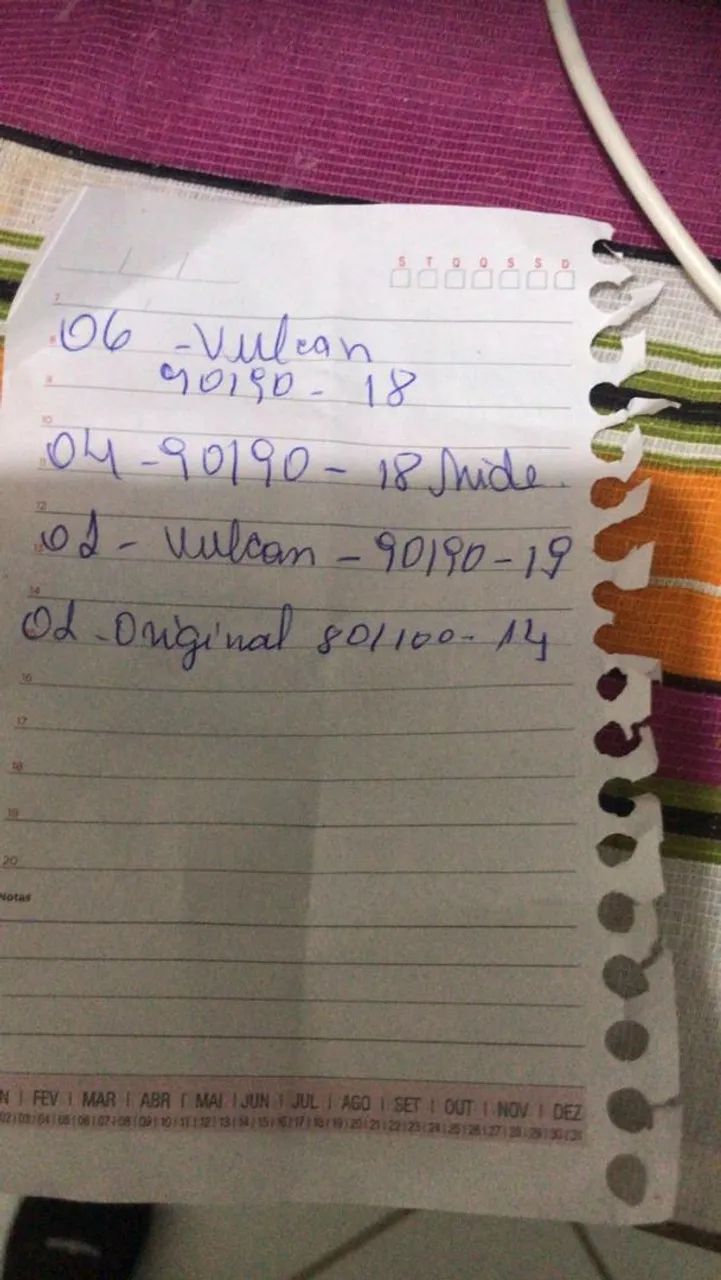 S T Q Q S S D
7
8 06 - Vulcan
9 90190 - 18
10
11 04 - 90190 - 18
12
13 02 - Vulcan - 90190 - 19
14
02 - Original 801100 - 14
16
17
18
19
20
Notas
N | FEV | MAR | ABR | MAI | JUN | JUL | AGO | SET | OUT | NOV | DEZ
02|03|04|05|06|07|08|09|10|11|12|13|14|15|16|17|18|19|20|21|22|23|24|25|26|27|28|29|30|31